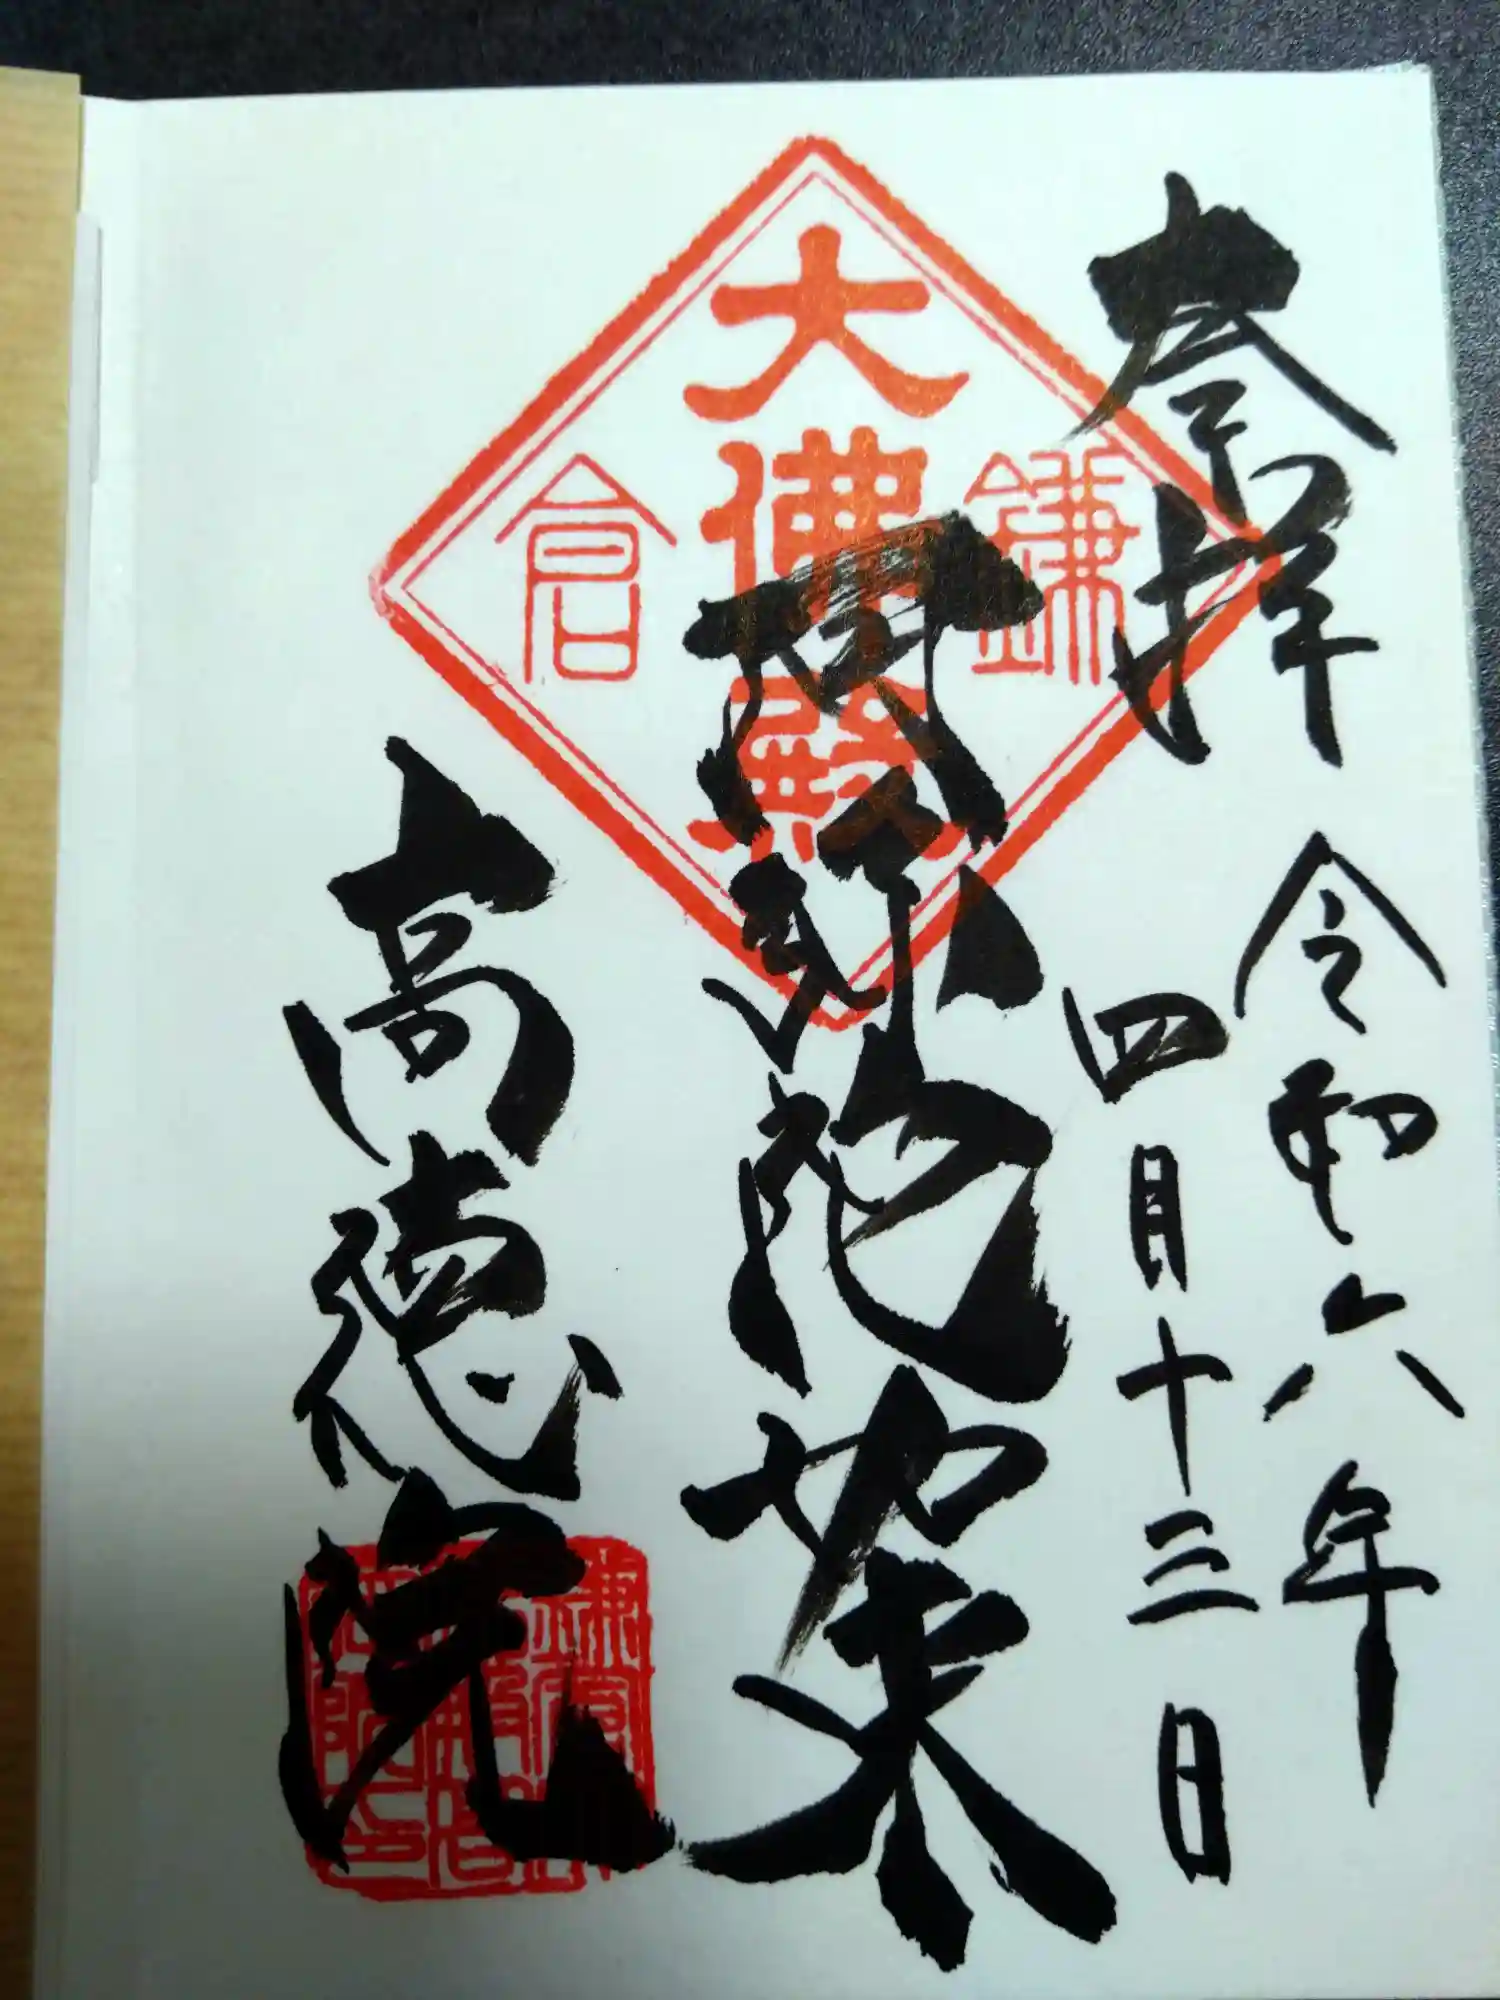 奉拝
令和六年
四月十三日
阿弥陀如来
高徳院
大佛殿
鎌
倉